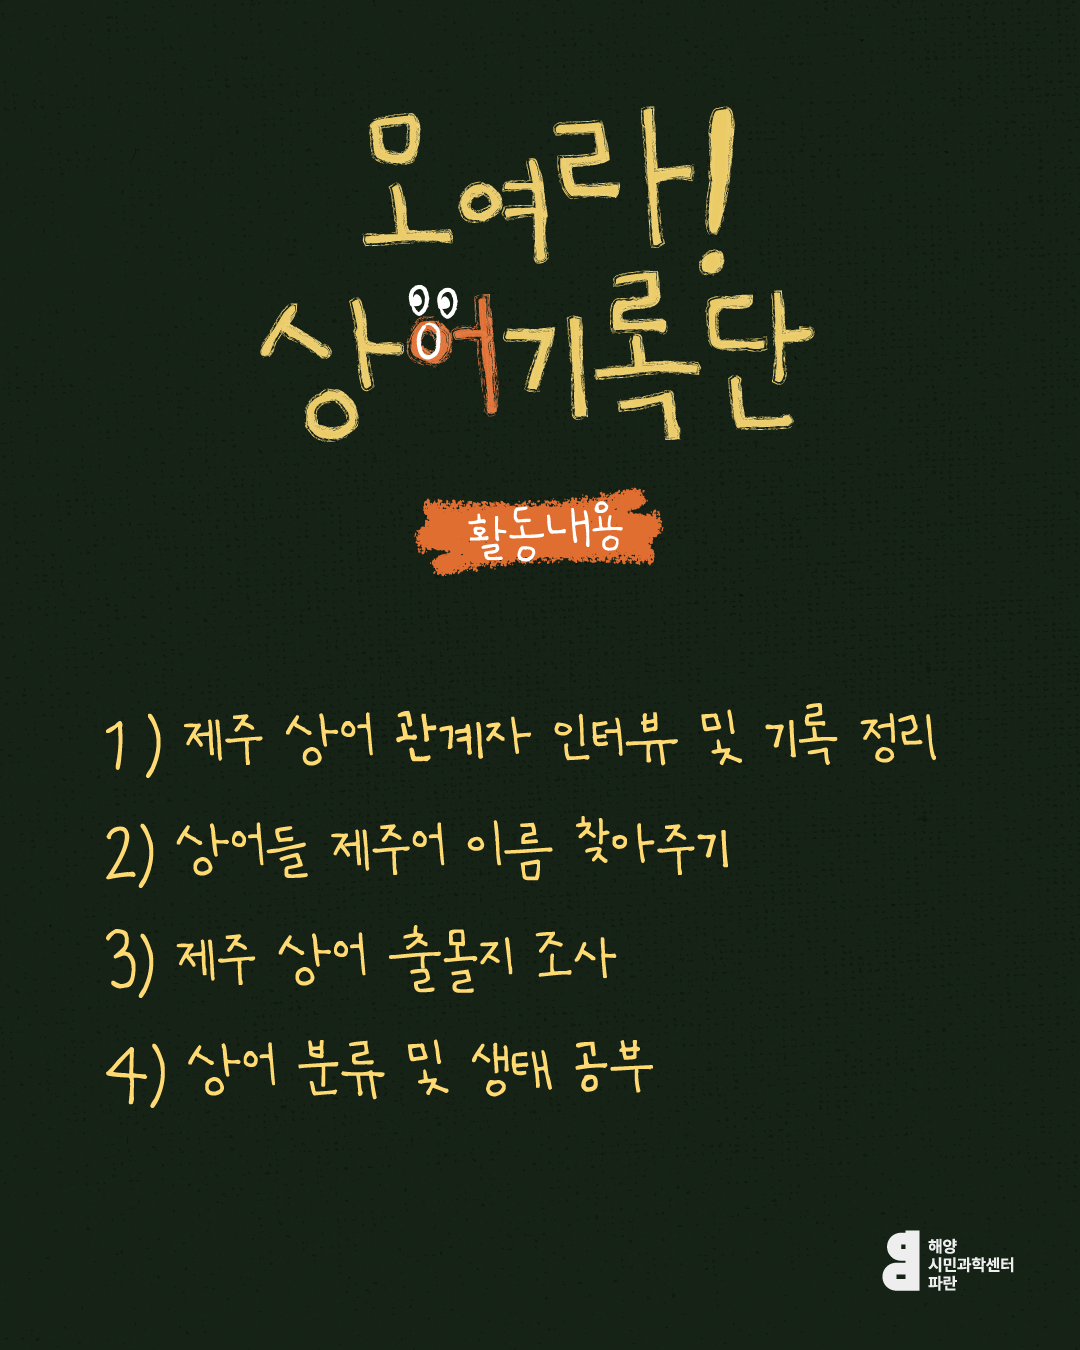 모여라!
상어기록단
활동내용
1) 제주 상어 관계자 인터뷰 및 기록 정리
2) 상어들 제주어 이름 찾아주기
3) 제주 상어 출몰지 조사
4) 상어 분류 및 생태 공부
해양
시민과학센터
파란